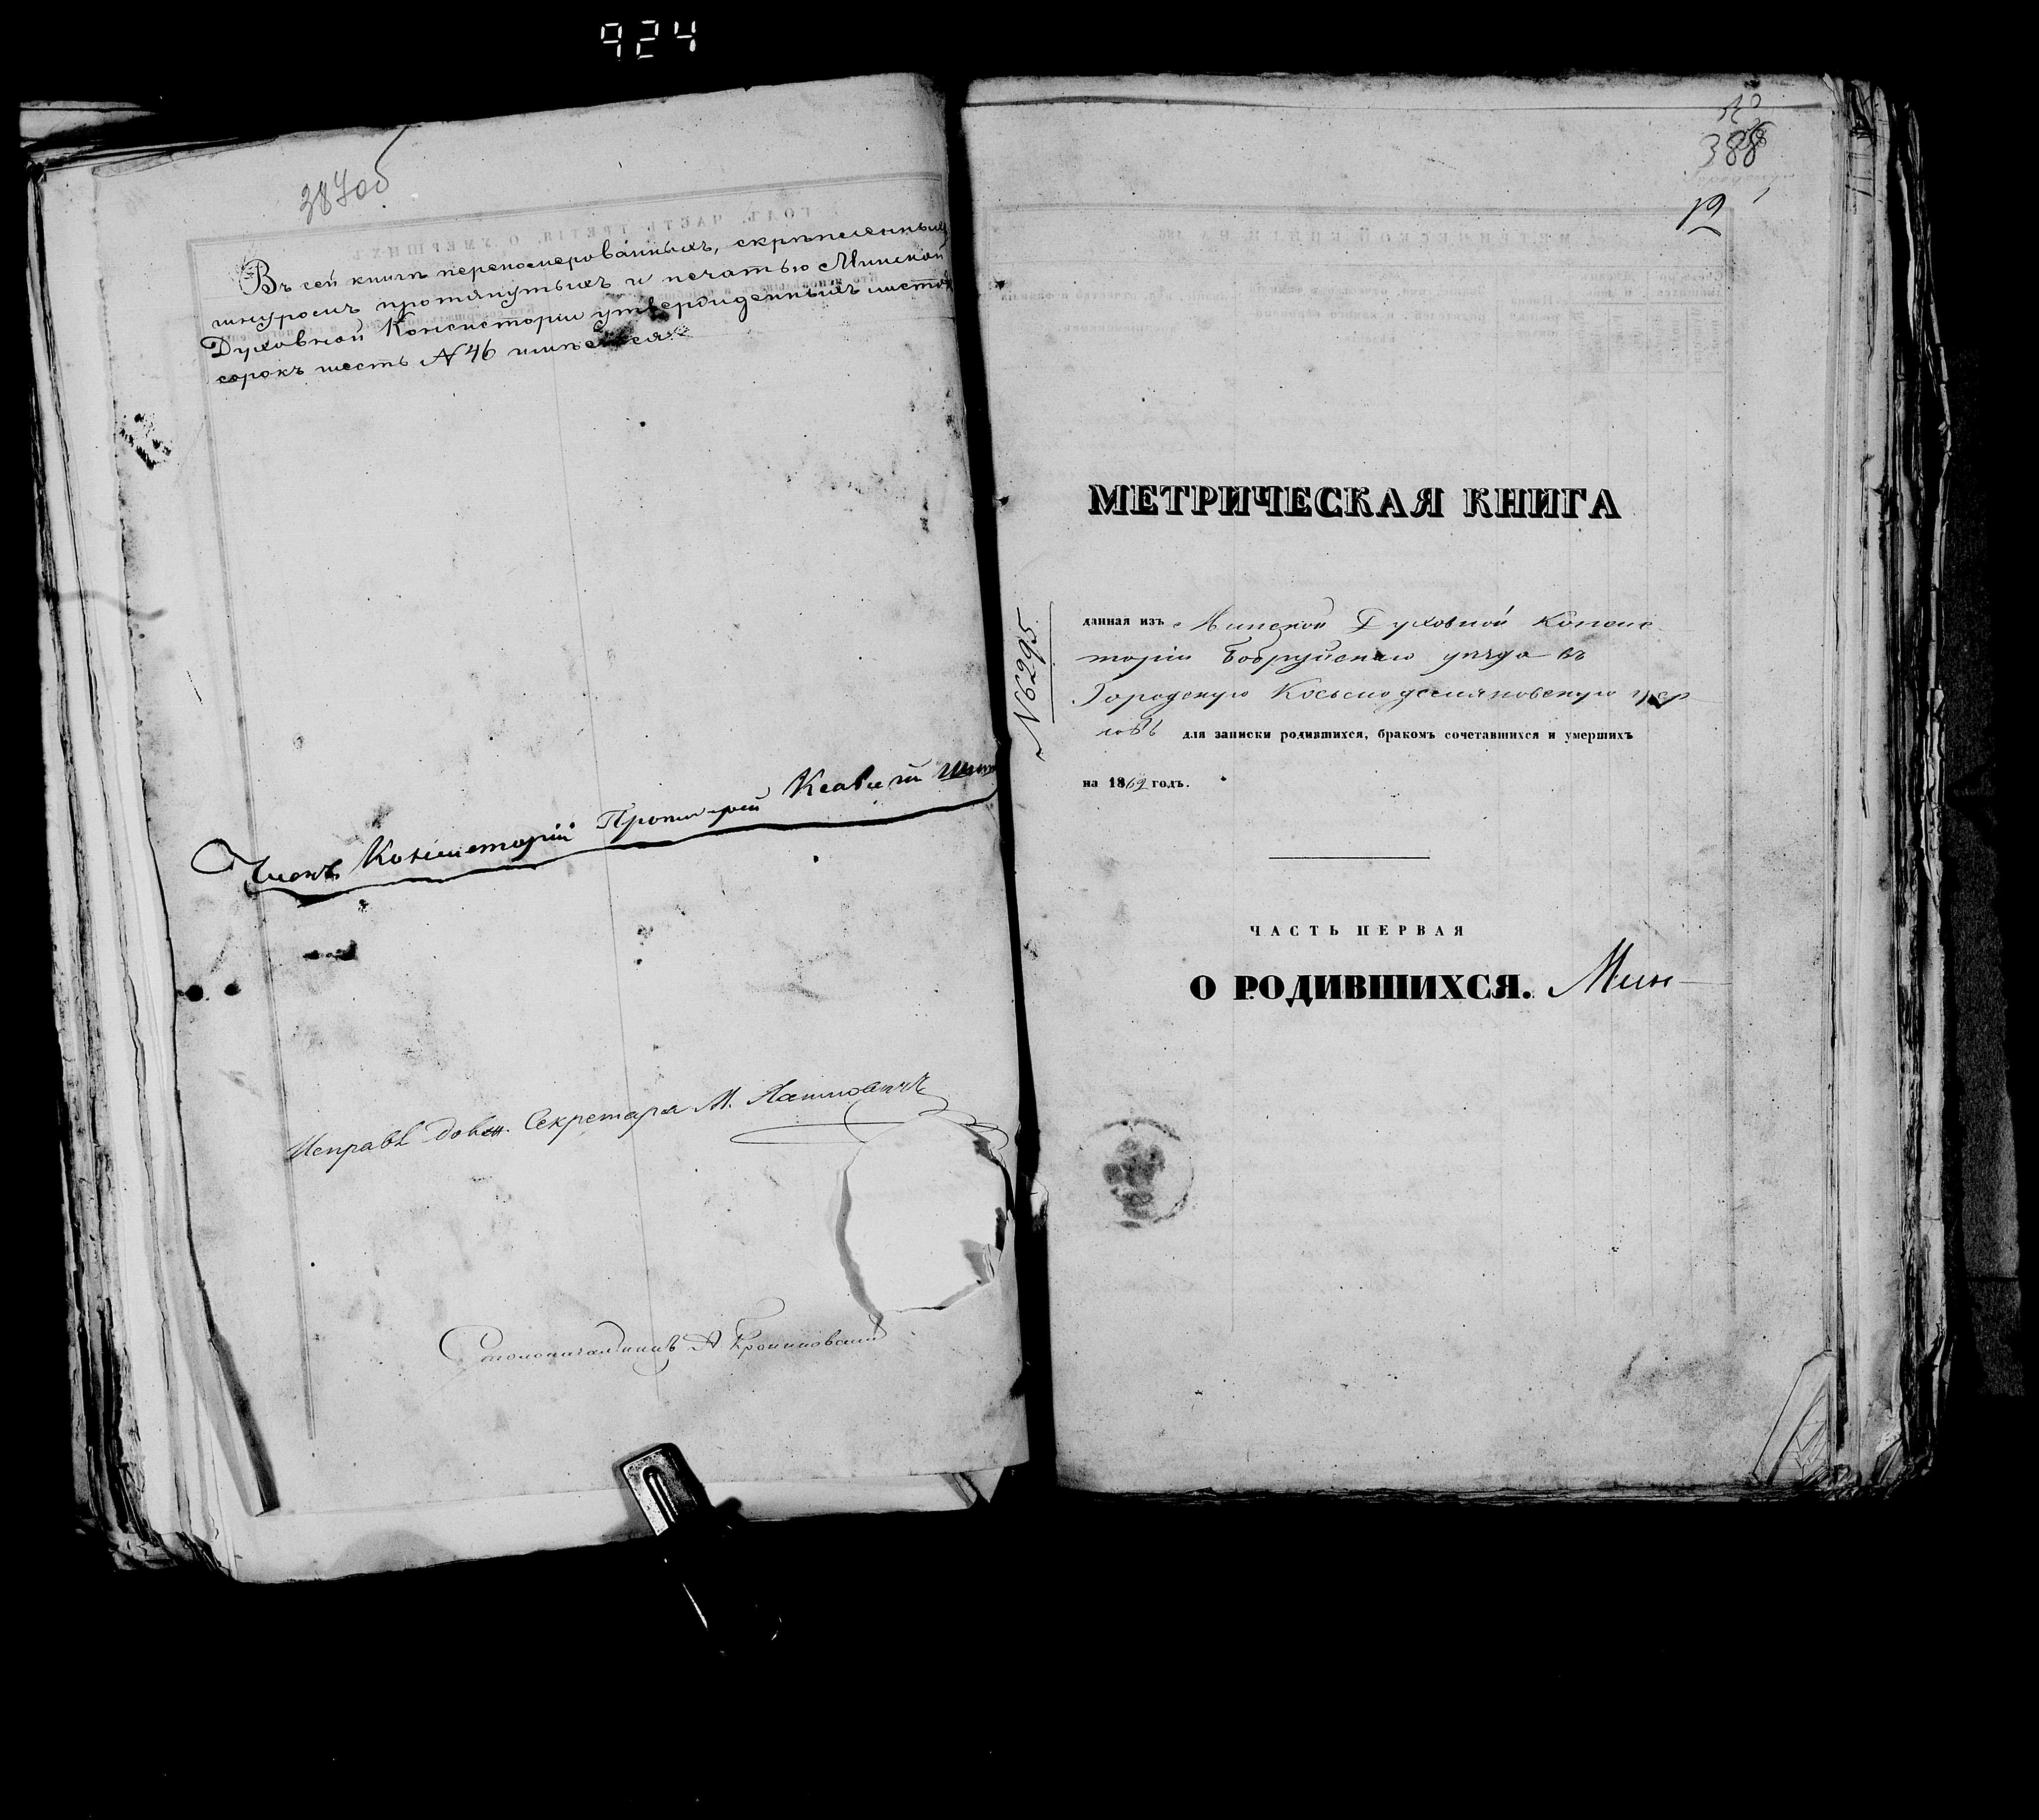 924
387об
Въ сей книгѣ перенумерованныхъ, скрѣпленныхъ
шнуромъ протянутыхъ и печатью Минской
Духовной Консисторіи утвержденныхъ листовъ
сорокъ шесть № 46 имѣется
Членъ Консисторіи Протоіерей
Исправл. долж. Секретаря М.
Столоначальникъ А
388
19
МЕТРИЧЕСКАЯ КНИГА
№ 6295
данная изъ Минской Духовной Консис
торіи Бобруйскаго уѣзда въ
Городскую Косьмодемяновскую цер
ковь для записки родившихся, бракомъ сочетавшихся и умершихъ
на 1869 годъ.
ЧАСТЬ ПЕРВАЯ
О РОДИВШИХСЯ. Мин-